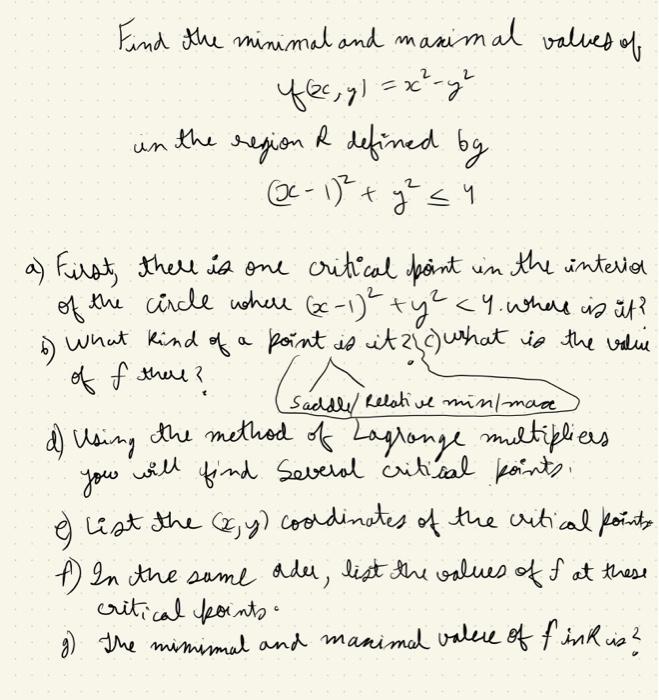 Find the minimal and maximal values of
f(x, y) = x² - y²
in the region R defined by
(x - 1)² + y² ≤ 4
a) First, there is one critical point in the interior
of the circle where (x - 1)² + y² < 4. where is it?
b) What kind of a point is it? c) what is the value
of f there?
Saddle / Relative min/max
d) Using the method of Lagrange multipliers
you will find several critical points.
e) List the (x, y) coordinates of the critical points
f) In the same oder, list the values of f at these
critical points.
g) The minimal and maximal value of f in R is?